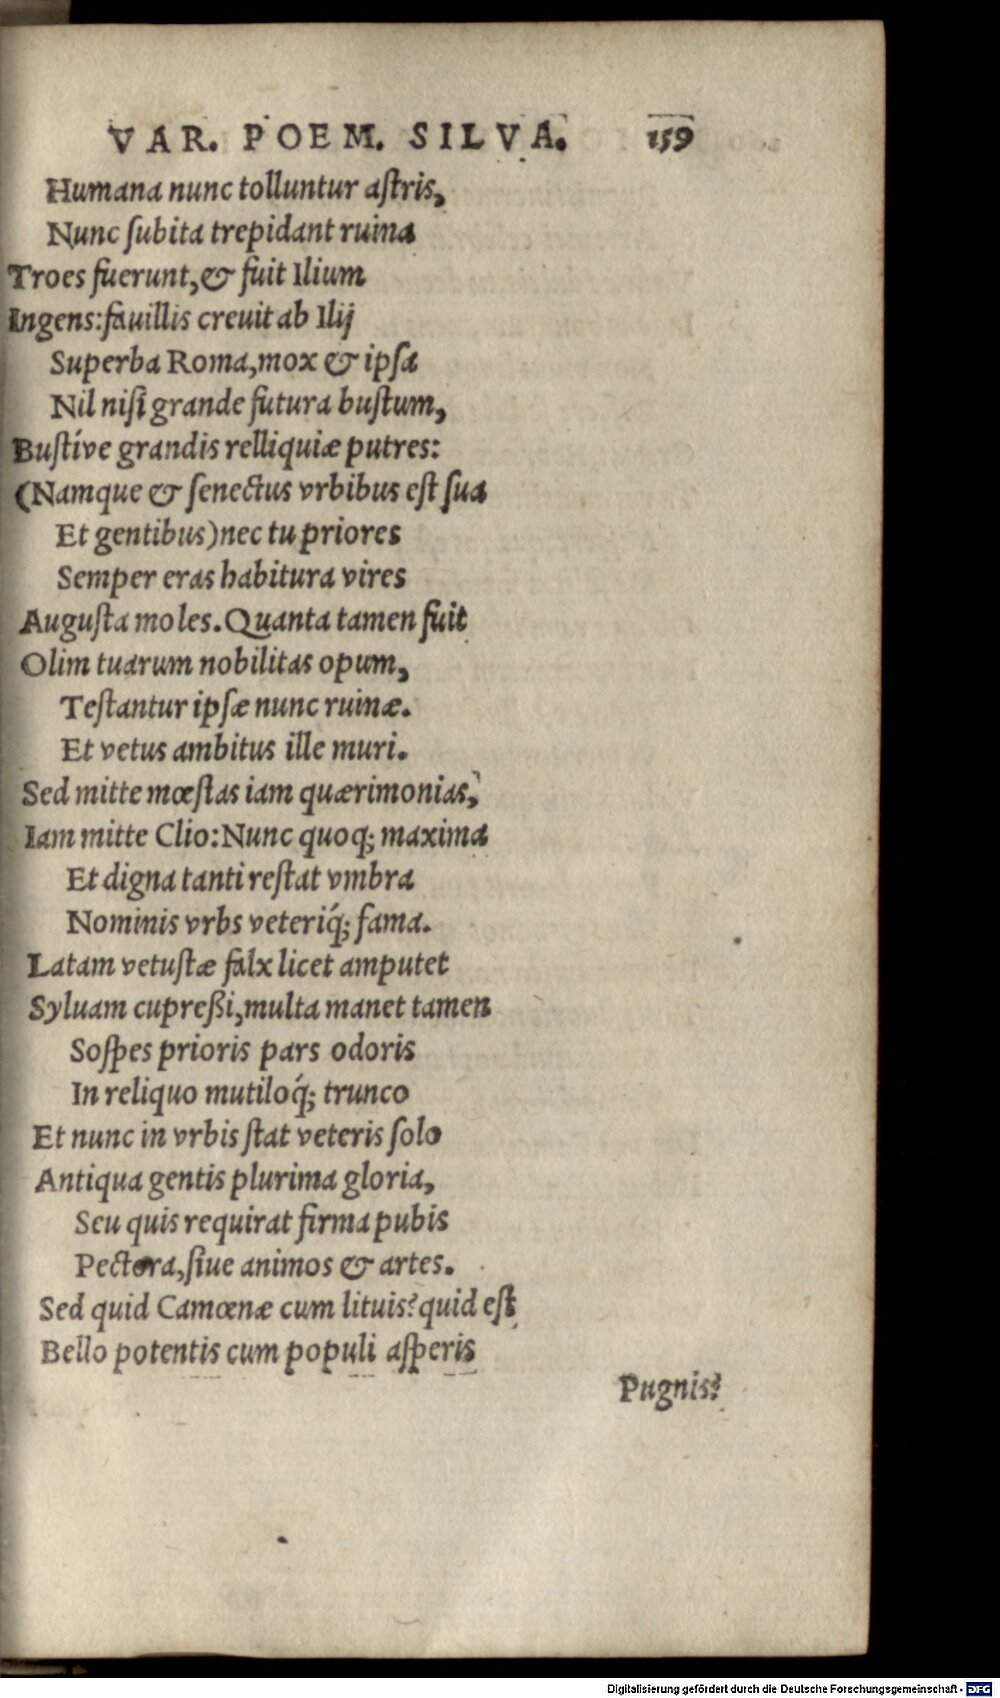 VAR. POEM. SILVA. 159
Humana nunc tolluntur aſtris,
Nunc ſubita trepidant ruina
Troes fuerunt,& fuit Ilium
Ingens:fauillis creuit ab Ilij
Superba Roma,mox & ipſa
Nil niſi grande futura buſtum,
Buſtíve grandis relliquiæ putres:
(Namque & ſenectus vrbibus eſt ſua
Et gentibus)nec tu priores
Semper eras habitura vires
Auguſta moles. Quanta tamen fuit
Olim tuarum nobilitas opum,
Teſtantur ipſæ nunc ruinæ.
Et vetus ambitus ille muri.
Sed mitte mœſtas iam quærimonias,
Iam mitte Clio:Nunc quoq; maxima
Et digna tanti reſtat vmbra
Nominis vrbs veteriq́; fama.
Latam vetuſtæ falx licet amputet
Syluam cupreßi,multa manet tamen
Soſpes prioris pars odoris
In reliquo mutiloq́; trunco
Et nunc in vrbis ſtat veteris ſolo
Antiqua gentis plurima gloria,
Seu quis requirat firma pubis
Pectora,ſiue animos & artes.
Sed quid Camœnæ cum lituis?quid eſt
Bello potentis cum populi aſperis
Pugnis?
Digitalisierung gefördert durch die Deutsche Forschungsgemeinschaft - DFG